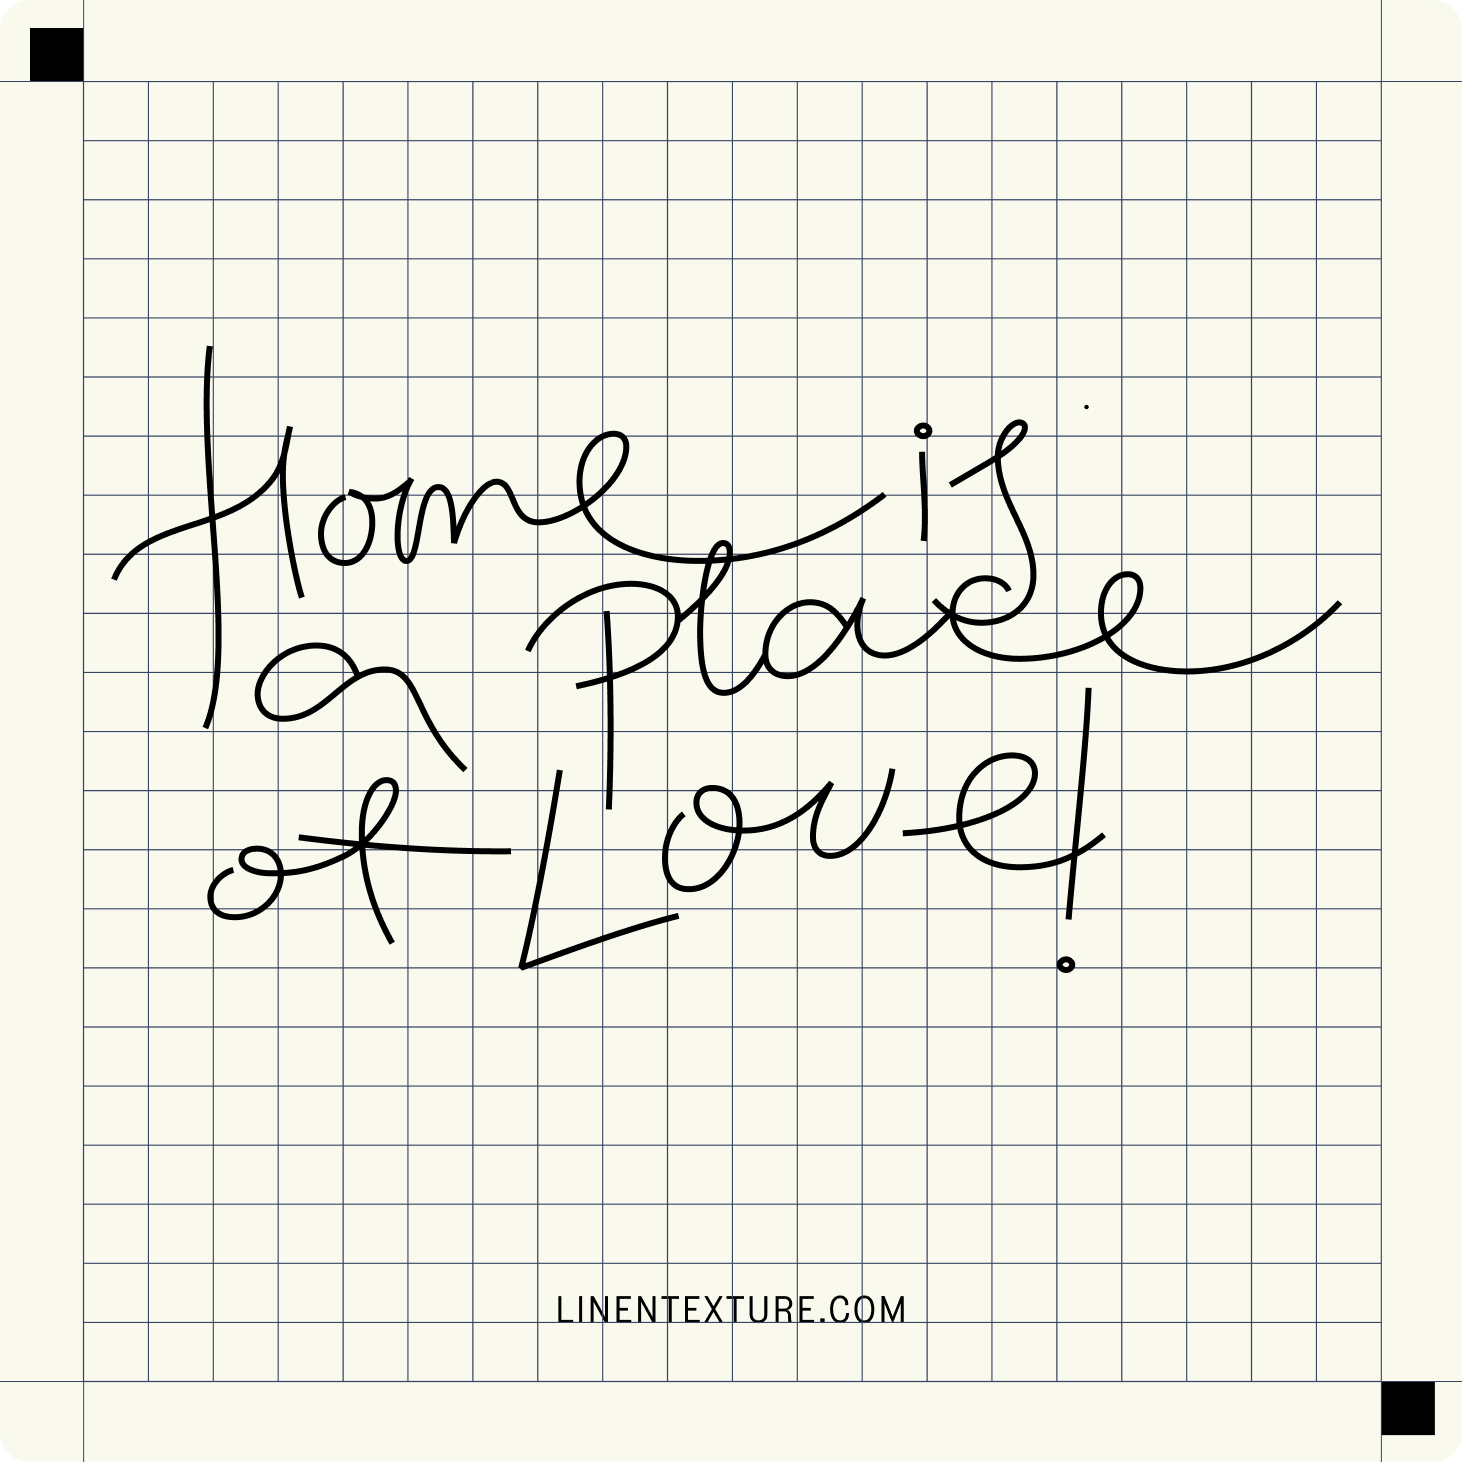 Home is
a place
of Love!
LINENTEXTURE.COM